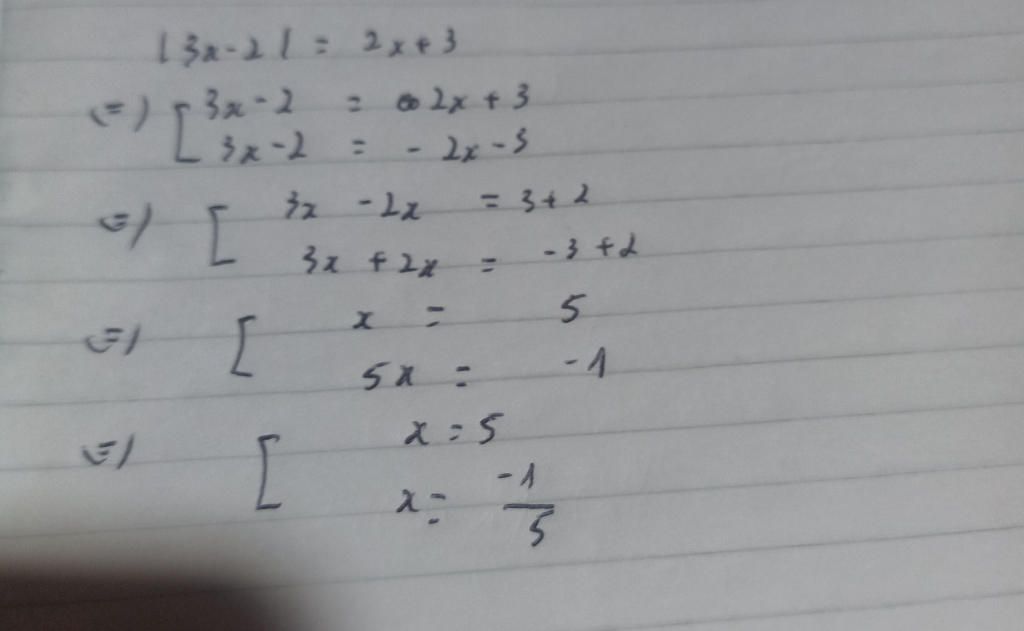 |3x-2| = 2x+3
(=) [ 3x-2 = 2x+3
3x-2 = -2x-3
(=) [ 3x -2x = 3+2
3x+2x = -3+2
(=) [ x = 5
5x = -1
(=) [ x = 5
x = -1/5